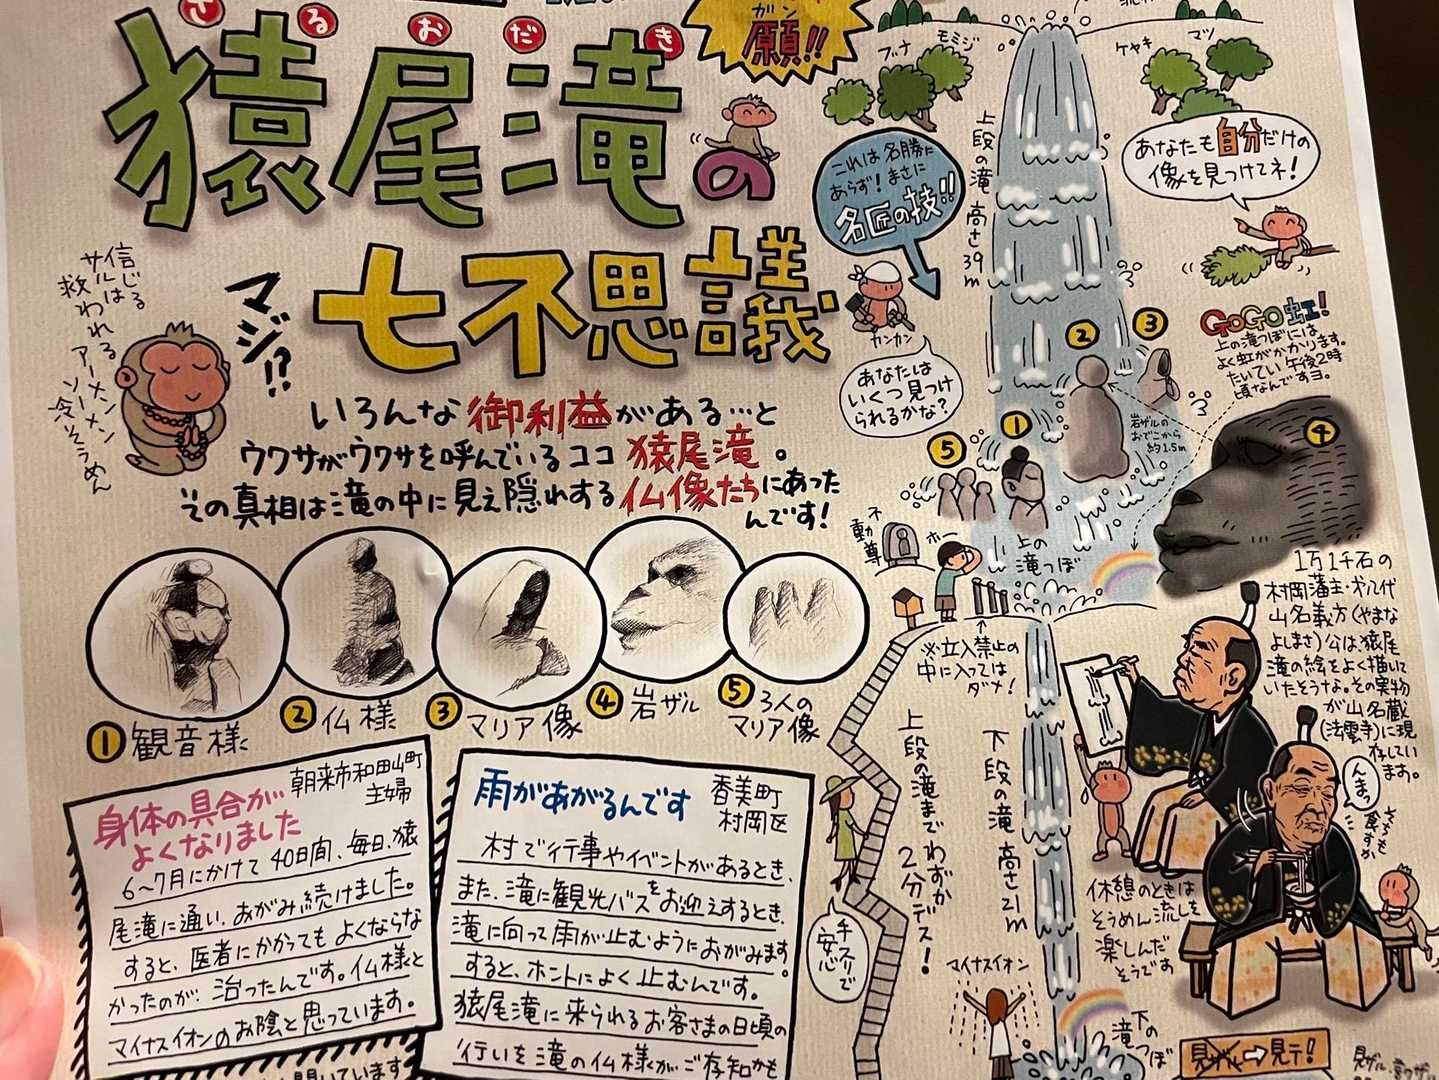 さるおだき
ガン
願!!
猿尾滝の
七不思議
マジ!?
信じる
サルは
救われる
アーメン
ソーメン
冷そうめん
いろんな御利益がある…と
ウワサがウワサを呼んでいるココ猿尾滝。
その真相は滝の中に見え隠れする仏像たちにあった
んです!
①観音様
②仏様
③マリア像
④岩ザル
⑤3人の
マリア像
身体の具合が
よくなりました
朝来市和田山町
主婦
6〜7月にかけて40日間、毎日、猿
尾滝に通い、あがみ続けました。
すると、医者にかかってもよくならな
かったのが、治ったんです。仏様と
マイナスイオンのお陰と思っています。
雨があがるんです
香美町
村岡区
村で行事やイベントがあるとき、
また、滝に観光バスをお迎えするとき、
滝に向って雨が止むようにおがみます。
すると、ホントによく止むんです。
猿尾滝に来られるお客さまの日頃の
行いを滝の仏様がご存知かも
ブナ
モミジ
ケヤキ
マツ
上段の滝 高さ39m
これは名勝に
あらず!まさに
名匠の技!!
カンカン
あなたは
いくつ見つけ
られるかな?
あなたも自分だけの
像を見つけてネ!
GOGO虹!
上の滝つぼには
よく虹がかかります。
たいてい午後2時
頃なんですヨ。
①
②
③
④
⑤
岩ザルの
おでこから
約1.5m
不動尊
ホー
上の
滝つぼ
※立入禁止の
中に入っては
ダメ!
上段の滝までわずか
2分デス!
手スリで
安心
下段の滝 高さ21m
マイナスイオン
下の
滝つぼ
1万1千石の
村岡藩主・第八代
山名義方(やまな
よしまさ)公は、猿尾
滝の絵をよく描いて
いたそうな。その実物
が山名蔵
(法雲寺)に現
存してい
ます。
んまっ
さるも
食すか
休憩のときは
そうめん流しを
楽しんだ
そうです
見ザル⇨見テ!